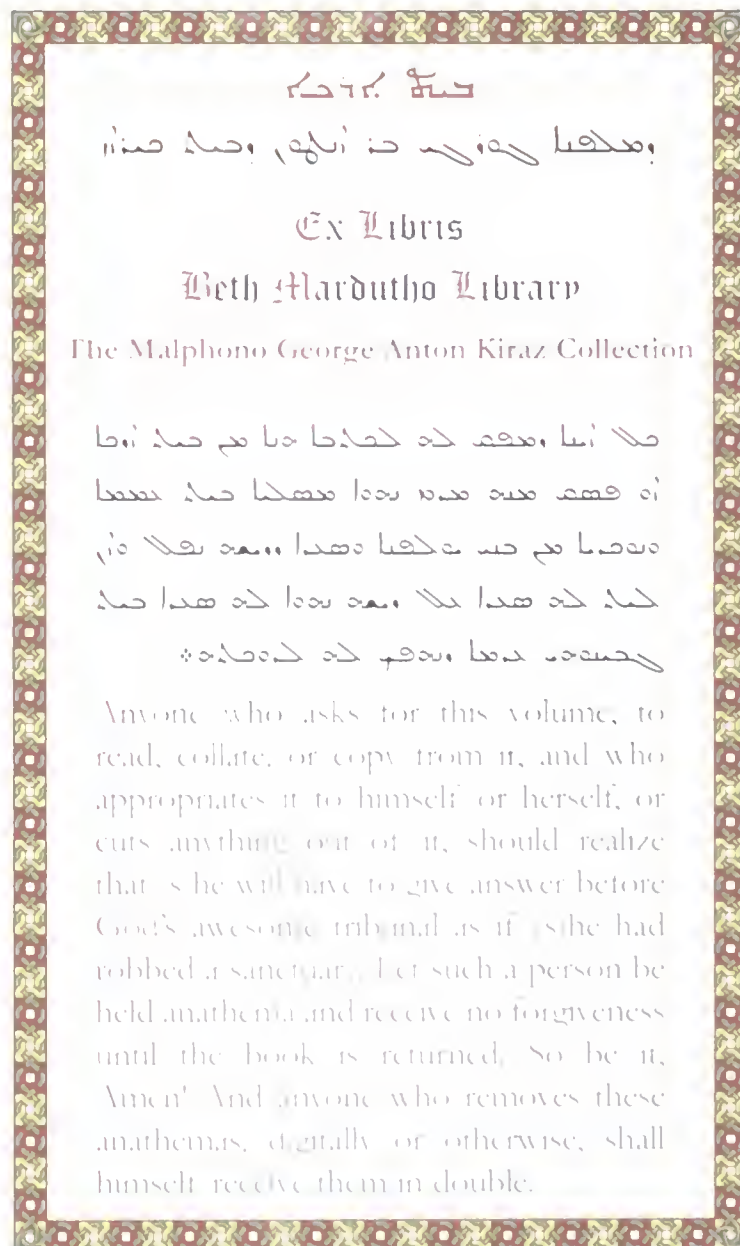 ܒܝܬ ܐܪܟܐ
ܕܡܠܦܢܐ ܓܘܪܓܝ ܒܪ ܐܢܛܘܢ ܕܒܝܬ
Ex Libris
Beth Mardutho Library
The Malphono George Anton Kiraz Collection
ܟܠ ܐܝܢܐ ܕܡܦܩ ܠܗ ܠܟܬܒܐ ܗܢܐ ܡܢ ܒܝܬ ܐܪܟܐ
ܐܘ ܦܣܩ ܡܢܗ ܡܕܡ ܢܗܘܐ ܡܣܠܝܐ ܒܝܬ ܥܡܡܐ
ܘܢܘܟܪܝܐ ܡܢ ܒܢܝ ܝܘܠܦܢܐ ܘܣܥܪܐ ܕܪܝܫܗ ܢܦܠ ܘܐܢ
ܠܝܬ ܠܗ ܣܥܪܐ ܥܠ ܪܝܫܗ ܢܗܘܐ ܠܗ ܣܥܪܐ ܒܝܬ
ܓܒܝܢܘܗܝ ܥܕܡܐ ܕܢܗܦܟ ܠܗ ܠܕܘܟܬܗ܀
Anyone who asks for this volume, to
read, collate, or copy from it, and who
appropriates it to himself or herself, or
cuts anything out of it, should realize
that s/he will have to give answer before
God's awesome tribunal as if s/he had
robbed a sanctuary. Let such a person be
held anathema and receive no forgiveness
until the book is returned. So be it,
Amen! And anyone who removes these
anathemas, digitally or otherwise, shall
himself receive them in double.